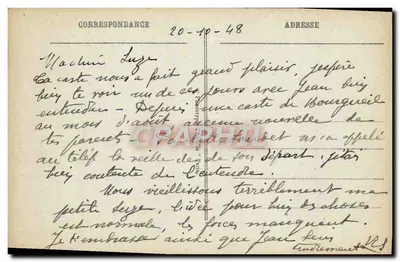 CORRESPONDANCE ADRESSE
20-10-48
Ma chère Suze
Ta carte nous a fait grand plaisir, j'espère
bien te voir un de ces jours avec Jean bien
entendu - Depuis une carte de Bourgueil
au mois d'août aucune nouvelle de
tes parents m'a appelé
au téléf la veille de son départ, j'étais
bien contente de l'entendre.
Nous vieillissons terriblement ma
petite Suze, l'idée pour bien des choses
est normale, les forces manquent.
Je t'embrasse ainsi que Jean bien
tendrement